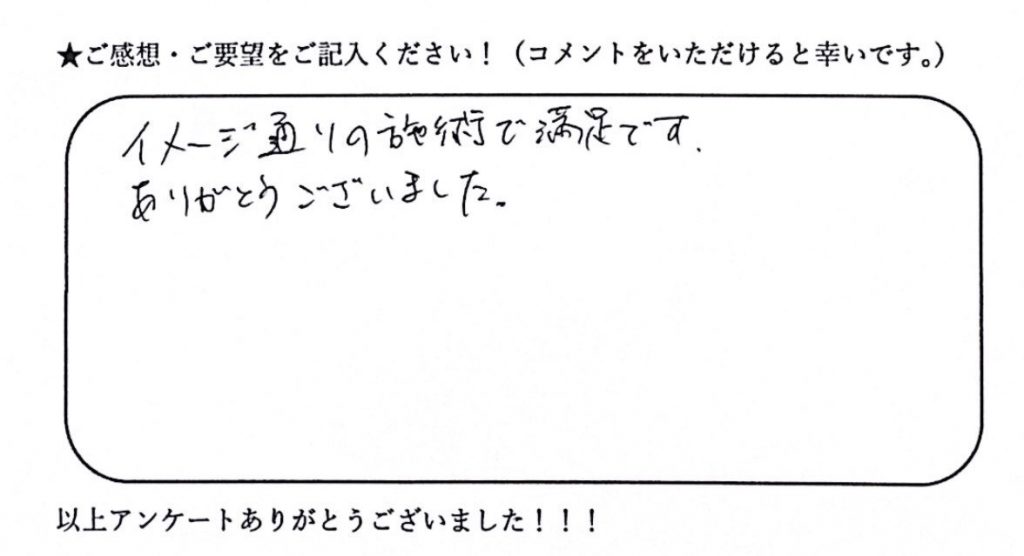 ★ご感想・ご要望をご記入ください！（コメントをいただけると幸いです。）
イメージ通りの施術で満足です.
ありがとうございました。
以上アンケートありがとうございました！！！